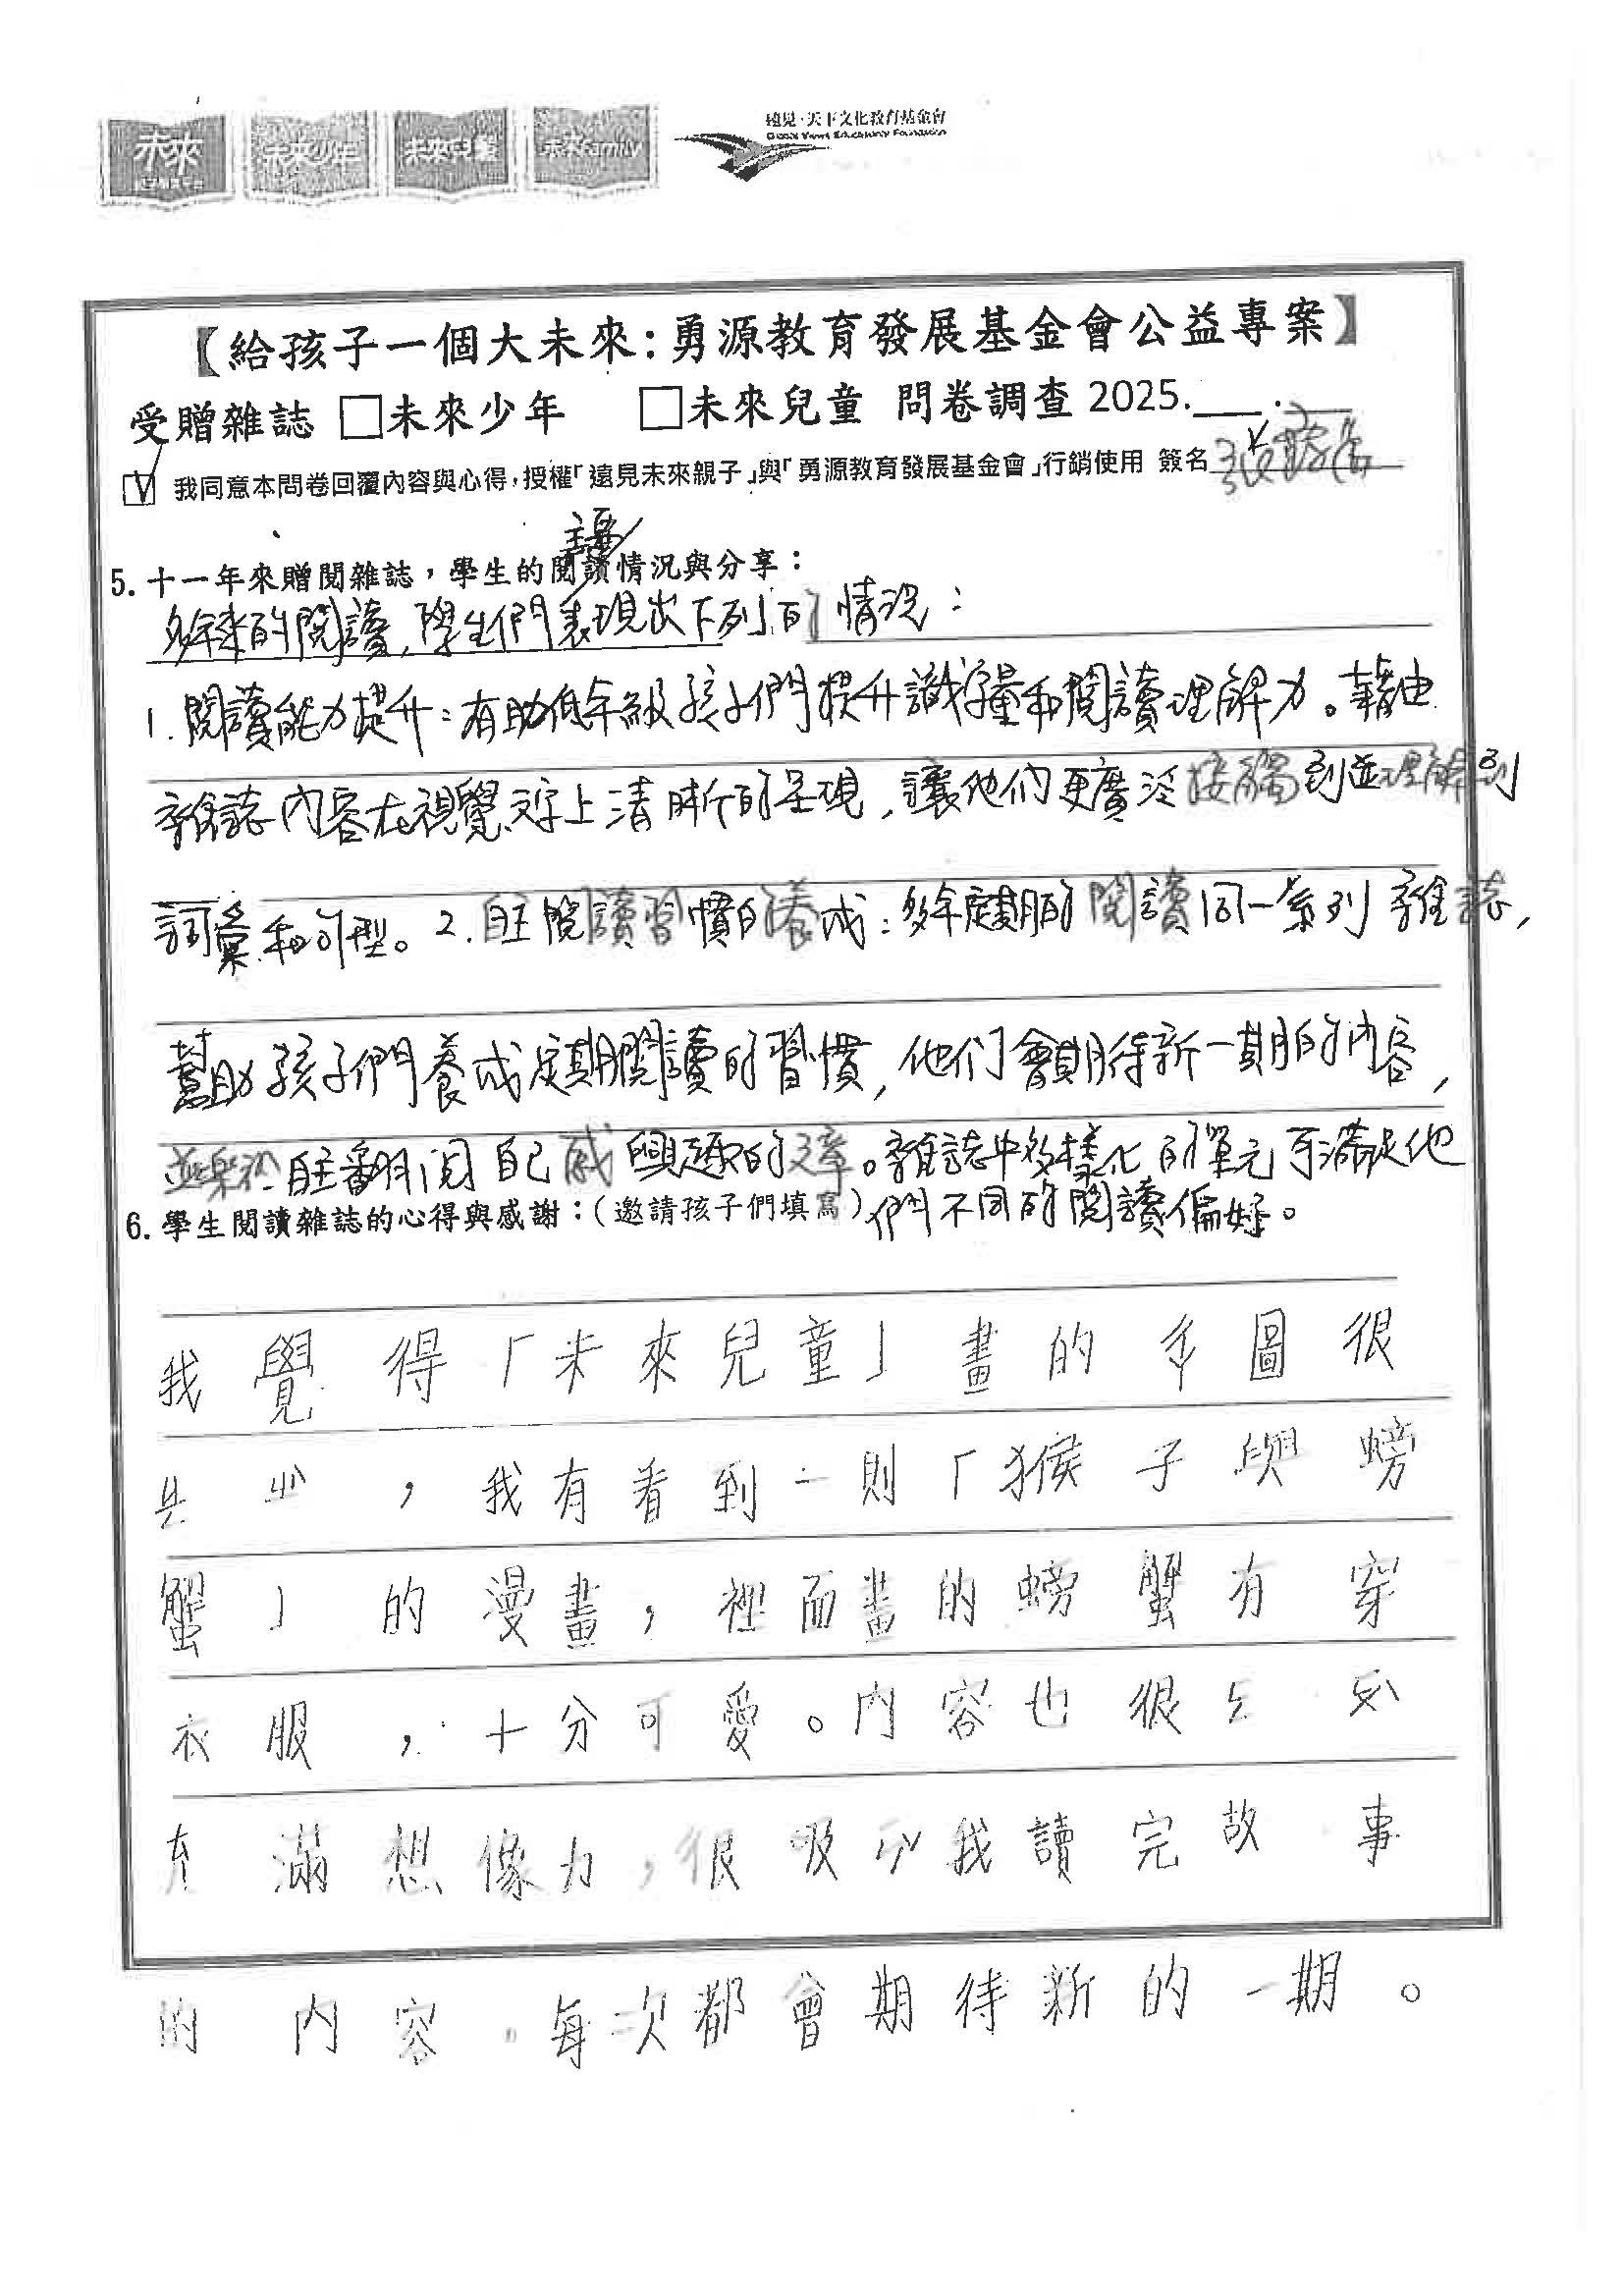 未來 未來少年 未來兒童 未來Family
遠見·天下文化教育基金會
Global Views Educational Foundation
【給孩子一個大未來:勇源教育發展基金會公益專案】
受贈雜誌 □未來少年 □未來兒童 問卷調查 2025.___.___
☑ 我同意本問卷回覆內容與心得,授權「遠見未來親子」與「勇源教育發展基金會」行銷使用 簽名
5. 十一年來贈閱雜誌,學生的閱讀情況與分享:
多年來的閱讀,學生們表現出下列的情況:
1. 閱讀能力提升:有助低年級孩子們提升識字量和閱讀理解力。藉由
雜誌內容在視覺文字上清晰的呈現,讓他們更廣泛接觸到並理解到
詞彙和句型。2. 自主閱讀習慣的養成:多年定期的閱讀同一系列雜誌,
幫助孩子們養成定期閱讀的習慣,他们會期待新一期的內容,
並樂於自主翻閱自己感興趣的文章。雜誌中多樣化的單元可滿足他
們不同的閱讀偏好。
6. 學生閱讀雜誌的心得與感謝:(邀請孩子們填寫)
我覺得「未來兒童」畫的 圖很
,我有看到一則「猴子與螃
蟹」的漫畫,裡面畫的螃蟹有穿
衣服,十分可愛。內容也很
充滿想像力,很吸 我讀完故事
的內容,每次都會期待新的一期。